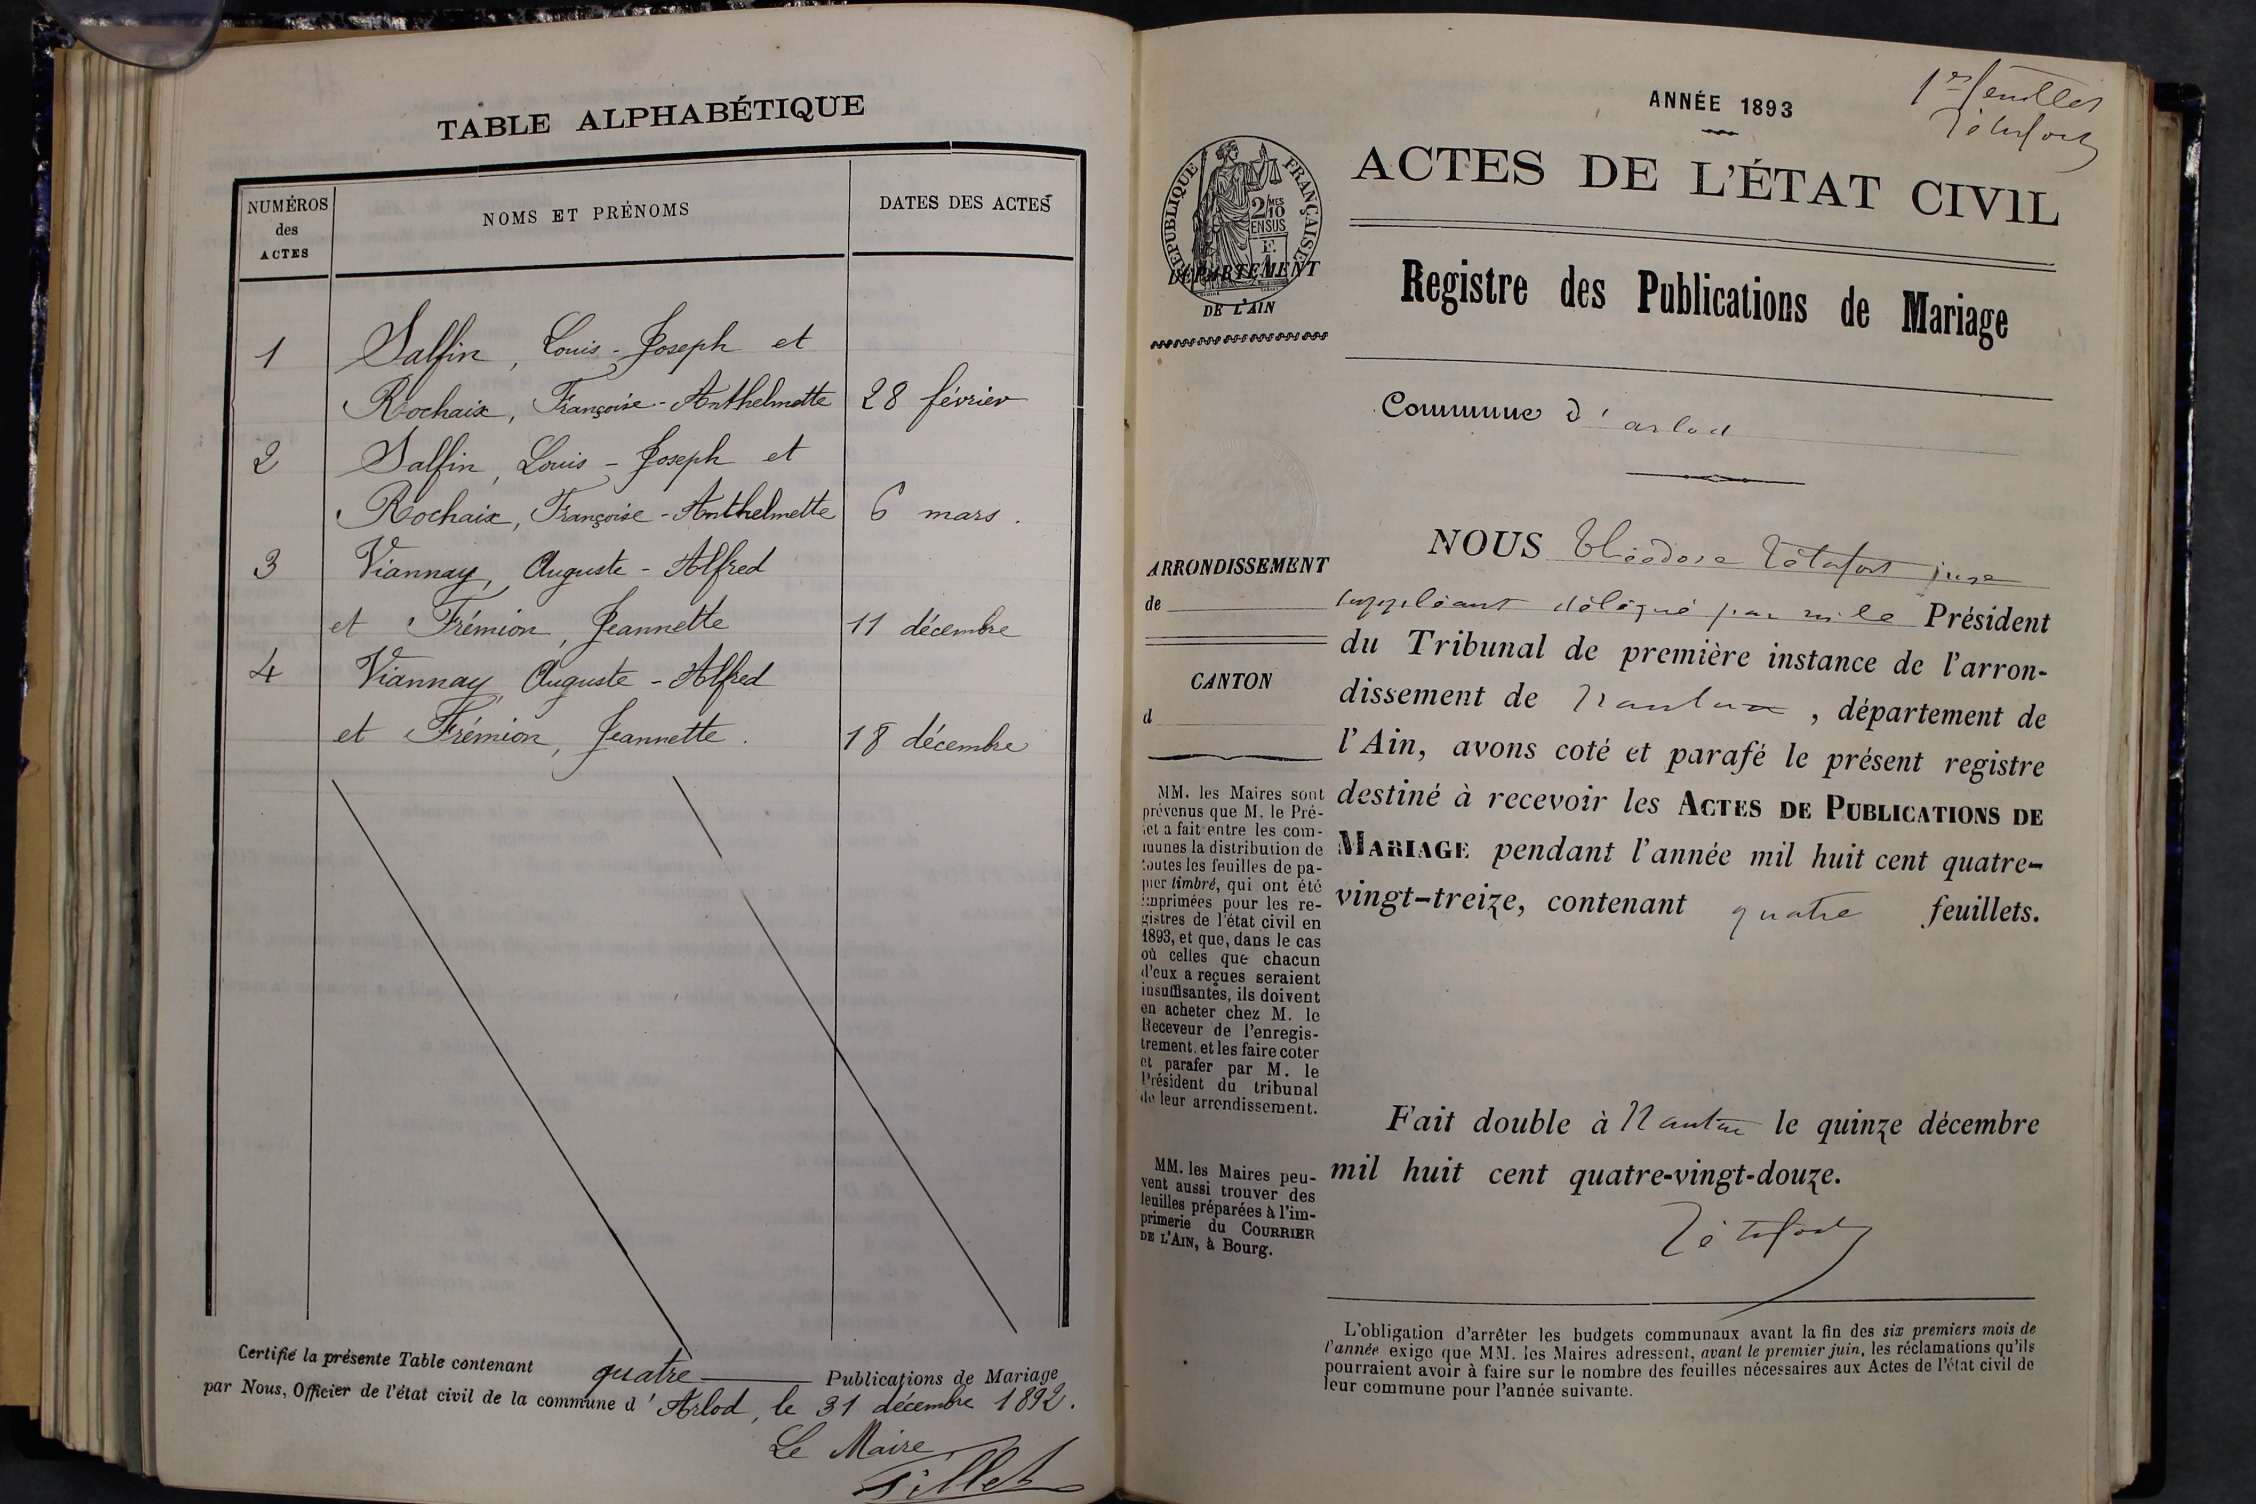 TABLE ALPHABÉTIQUE
NUMÉROS
des
ACTES
NOMS ET PRÉNOMS
DATES DES ACTES
1
Salfin, Louis-Joseph et
Rochaix, Françoise-Anthelmette
28 février
2
Salfin, Louis-Joseph et
Rochaix, Françoise-Anthelmette
6 mars.
3
Viannay, Auguste-Alfred
et Frémion, Jeannette
11 décembre
4
Viannay, Auguste-Alfred
et Frémion, Jeannette.
18 décembre
Certifié la présente Table contenant quatre Publications de Mariage
par Nous, Officier de l'état civil de la commune d'Arlod, le 31 décembre 1892.
Le Maire
Tillet
1er feuillet
Tétafort
ANNÉE 1893
ACTES DE L'ÉTAT CIVIL
RÉPUBLIQUE FRANÇAISE
2/10MES
EN SUS
DÉPARTEMENT
DE L'AIN
Registre des Publications de Mariage
Commune d'arlod
ARRONDISSEMENT
de
CANTON
d
MM. les Maires sont
prévenus que M. le Pré-
fet a fait entre les com-
munes la distribution de
toutes les feuilles de pa-
pier timbré, qui ont été
imprimées pour les re-
gistres de l'état civil en
1893, et que, dans le cas
où celles que chacun
d'eux a reçues seraient
insuffisantes, ils doivent
en acheter chez M. le
Receveur de l'enregis-
trement, et les faire coter
et parafer par M. le
Président du tribunal
de leur arrondissement.
MM. les Maires peu-
vent aussi trouver des
feuilles préparées à l'im-
primerie du COURRIER
DE L'AIN, à Bourg.
NOUS Théodore Tétafort juge
suppléant délégué par m le Président
du Tribunal de première instance de l'arron-
dissement de Nantua, département de
l'Ain, avons coté et parafé le présent registre
destiné à recevoir les ACTES DE PUBLICATIONS DE
MARIAGE pendant l'année mil huit cent quatre-
vingt-treize, contenant quatre feuillets.
Fait double à Nantua le quinze décembre
mil huit cent quatre-vingt-douze.
Tétafort
L'obligation d'arrêter les budgets communaux avant la fin des six premiers mois de
l'année exige que MM. les Maires adressent, avant le premier juin, les réclamations qu'ils
pourraient avoir à faire sur le nombre des feuilles nécessaires aux Actes de l'état civil de
leur commune pour l'année suivante.